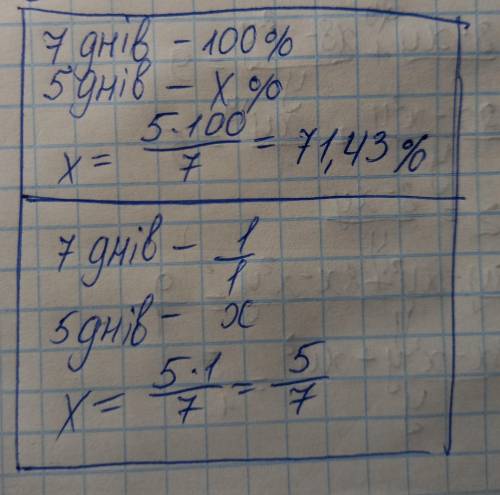 7 днів - 100%
5 днів - x %
x = 5·100/7 = 71,43 %
7 днів - 1/1
5 днів - x
x = 5·1/7 = 5/7